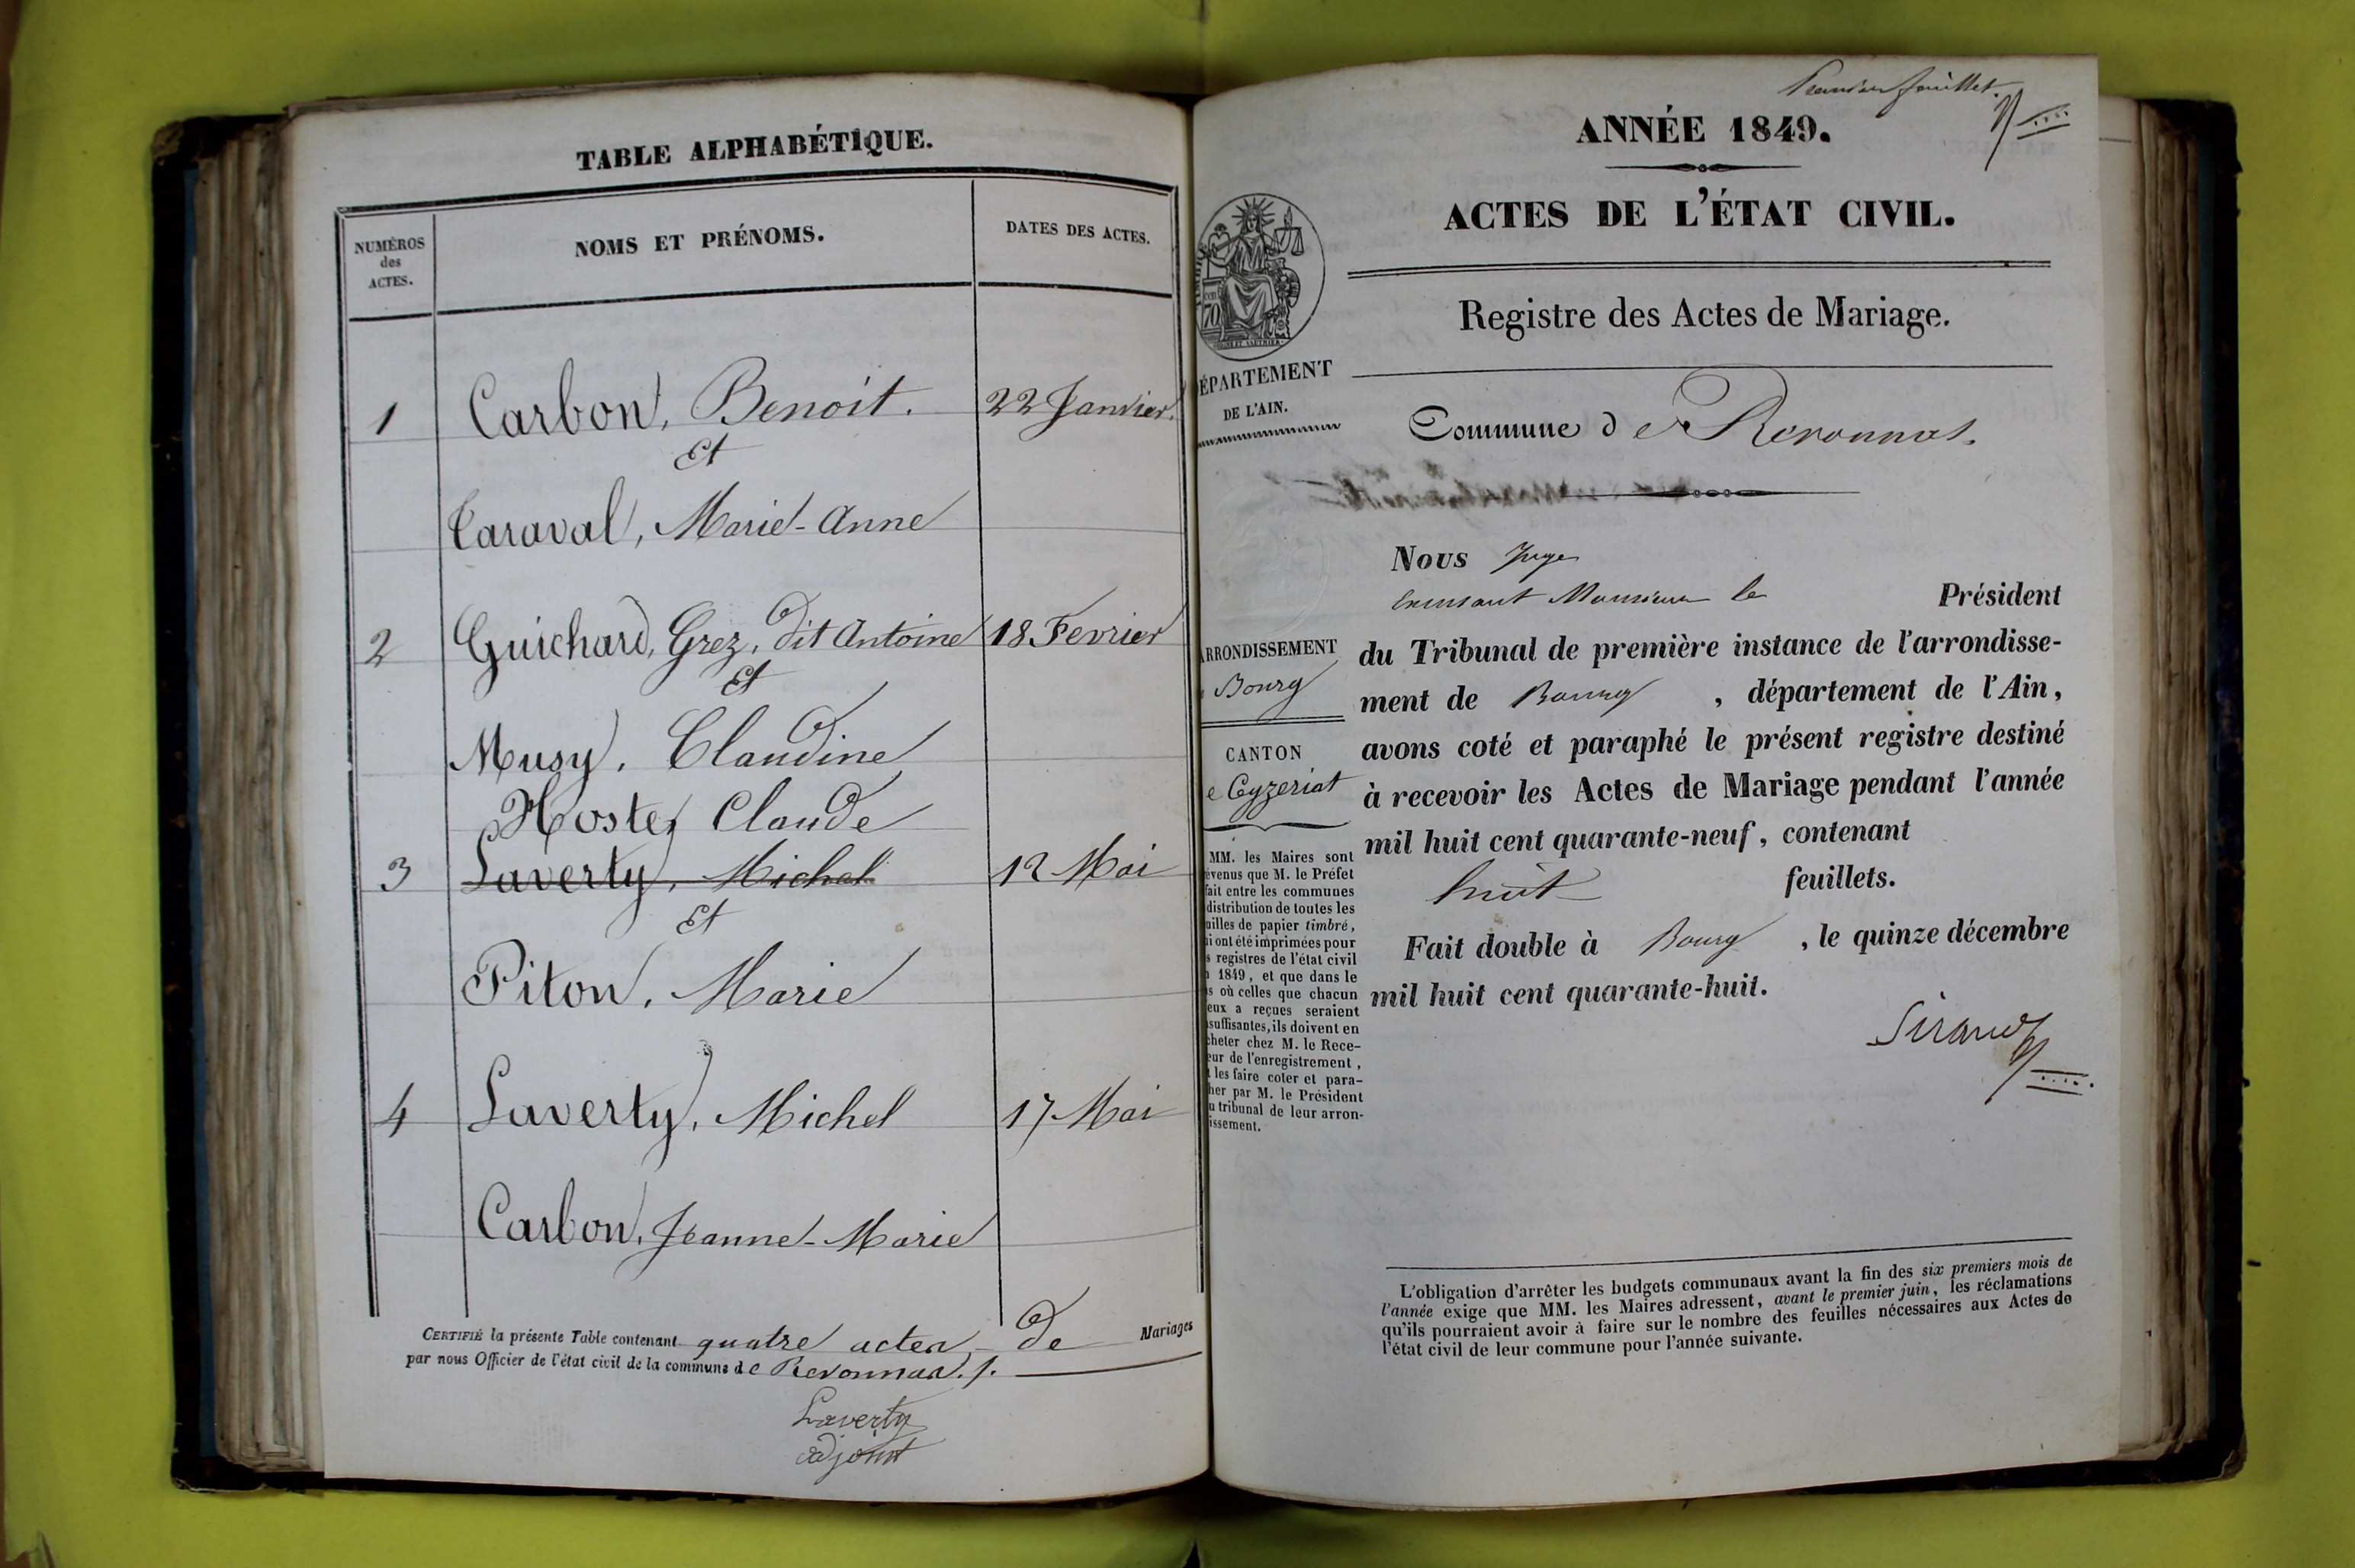 TABLE ALPHABÉTIQUE.
NUMÉROS
des
ACTES.
NOMS ET PRÉNOMS.
DATES DES ACTES.
1 Carbon, Benoit. 22 Janvier.
Et
Taraval, Marie-Anne
2 Guichard, Grez, dit Antoine 18 Fevrier
Et
Musy, Claudine
Hoste, Claude
3 Laverty, Michel 12 Mai
Et
Piton, Marie
4 Laverty, Michel 17 Mai
Carbon, Jeanne-Marie
CERTIFIÉ la présente Table contenant quatre actes de Mariages
par nous Officier de l'état civil de la commune de Revonnas.
Laverty
adjoint
Premier feuillet.
ANNÉE 1849.
ACTES DE L'ÉTAT CIVIL.
Registre des Actes de Mariage.
70
ÉPARTEMENT
DE L'AIN.
Commune de Revonnas.
RRONDISSEMENT
Bourg
CANTON
e Ceyzeriat
MM. les Maires sont
évenus que M. le Préfet
fait entre les communes
distribution de toutes les
uilles de papier timbré,
i ont été imprimées pour
s registres de l'état civil
1849, et que dans le
s où celles que chacun
eux a reçues seraient
suffisantes, ils doivent en
cheter chez M. le Rece-
eur de l'enregistrement,
les faire coter et para-
her par M. le Président
u tribunal de leur arron-
issement.
Nous Juge
Monsieur le Président
du Tribunal de première instance de l'arrondisse-
ment de Bourg, département de l'Ain,
avons coté et paraphé le présent registre destiné
à recevoir les Actes de Mariage pendant l'année
mil huit cent quarante-neuf, contenant
huit feuillets.
Fait double à Bourg, le quinze décembre
mil huit cent quarante-huit.
Sirand
L'obligation d'arrêter les budgets communaux avant la fin des six premiers mois de
l'année exige que MM. les Maires adressent, avant le premier juin, les réclamations
qu'ils pourraient avoir à faire sur le nombre des feuilles nécessaires aux Actes de
l'état civil de leur commune pour l'année suivante.